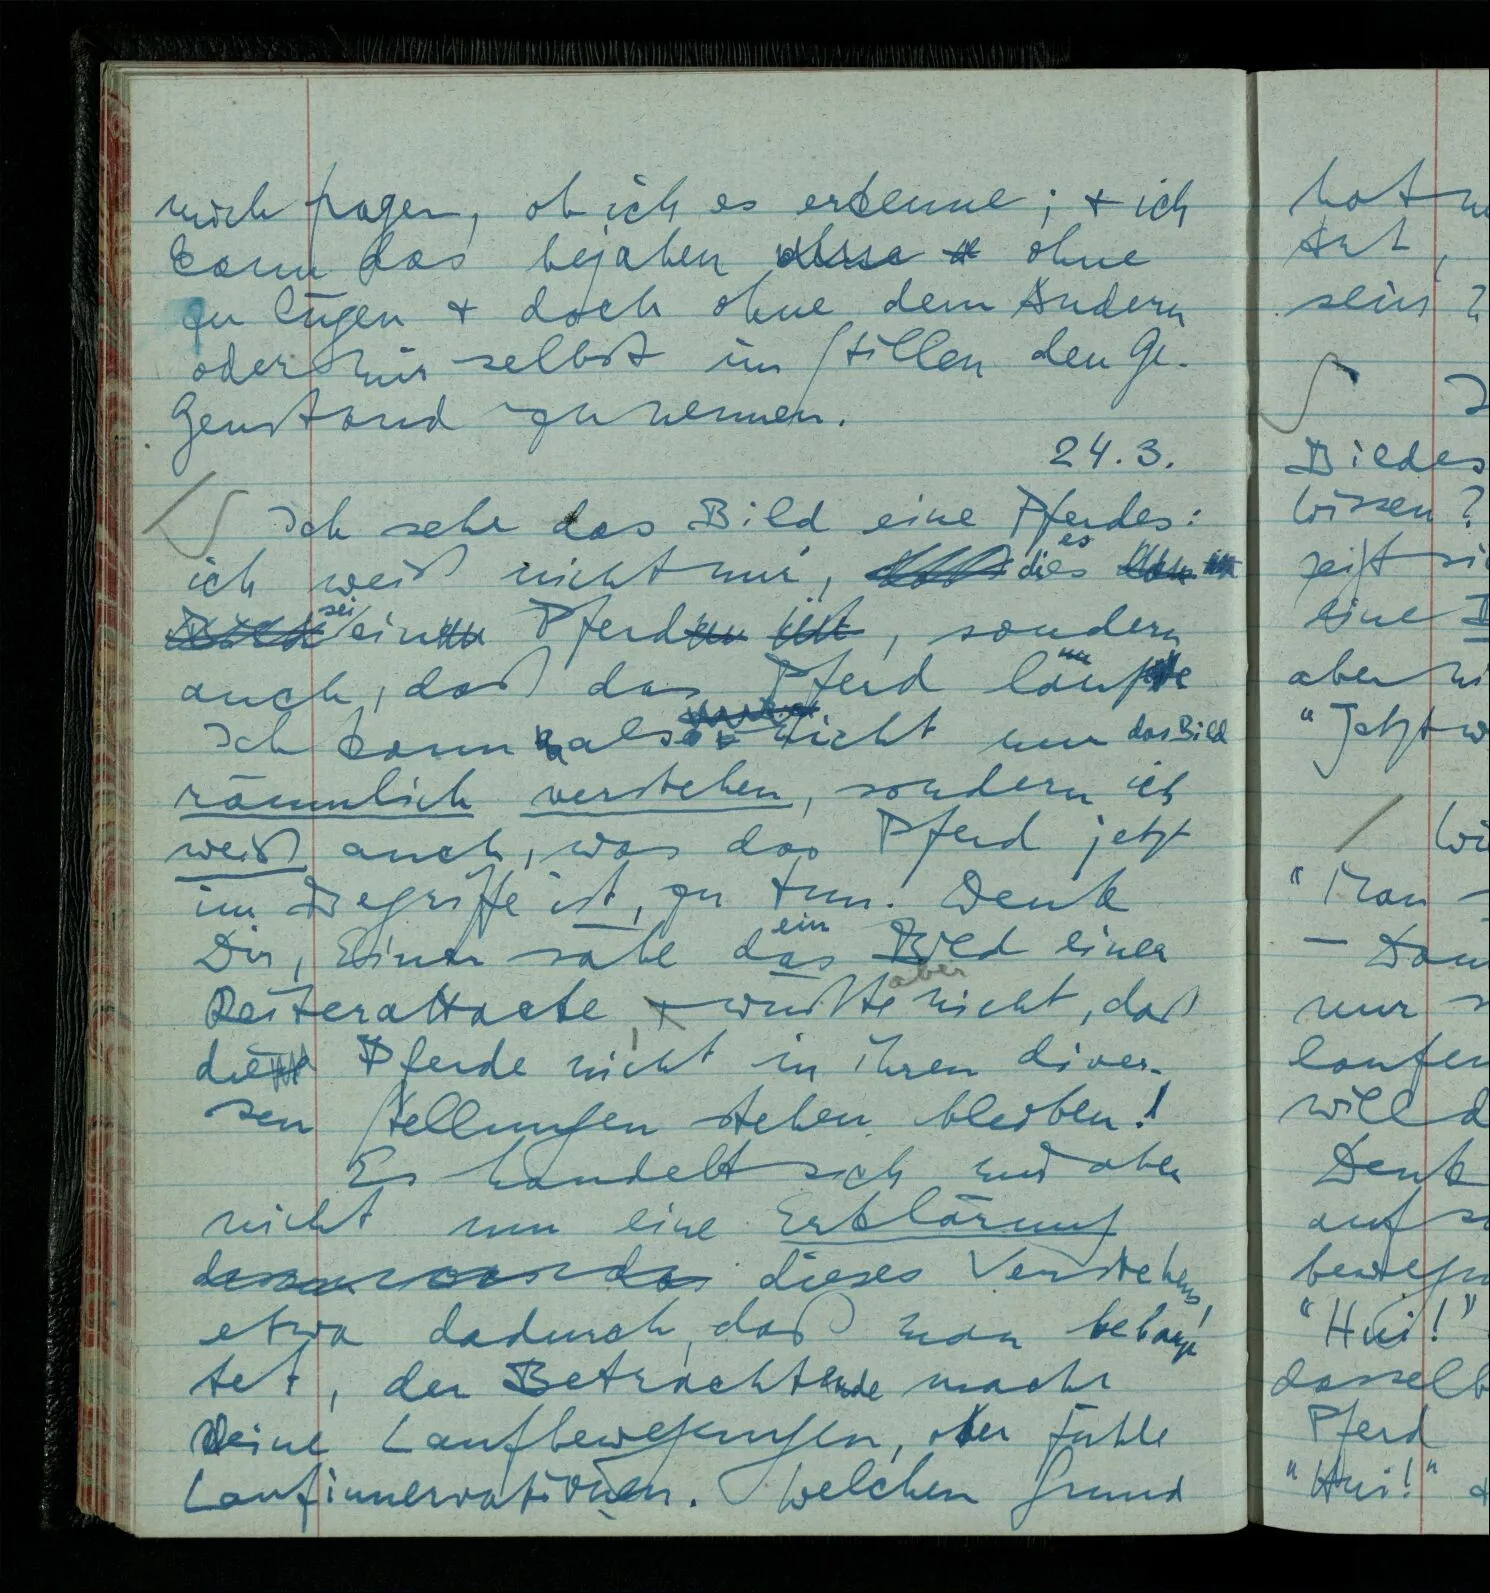 mich fragen, ob ich es erkenne; + ich
kann das bejahen ohne
zu lügen + doch ohne dem Andern
oder mir selbst im Stillen den Ge-
genstand zu nennen.
24.3.
Ich sehe das Bild eine Pferdes:
ich weiß nicht nur, dies es
sei ein Pferd, sondern
auch, daß das Pferd läuft
Ich kann also nicht nur das Bild
räumlich verstehen, sondern ich
weiß auch, was das Pferd jetzt
im Begriffe ist, zu tun. Denk
Dir, Einer sähe das ein Bild einer
Reiterattacke, + wußte aber nicht, daß
die Pferde nicht in ihren diver-
sen Stellungen stehen bleiben!
Es handelt sich mir aber
nicht um eine Erklärung
dieses Verstehens,
etwa dadurch, daß man behaup
tet, der Betrachtende mache
kleine Laufbewegungen, oder fühle
Laufinnervationen. Welchen Grund
hat
Art,
sein?
Bildes
wissen?
zeigt
eine
aber
"Jetzt
"Man
nur
laufen
will
Denk
auf
"Hui!"
Pferd
"Hui!"